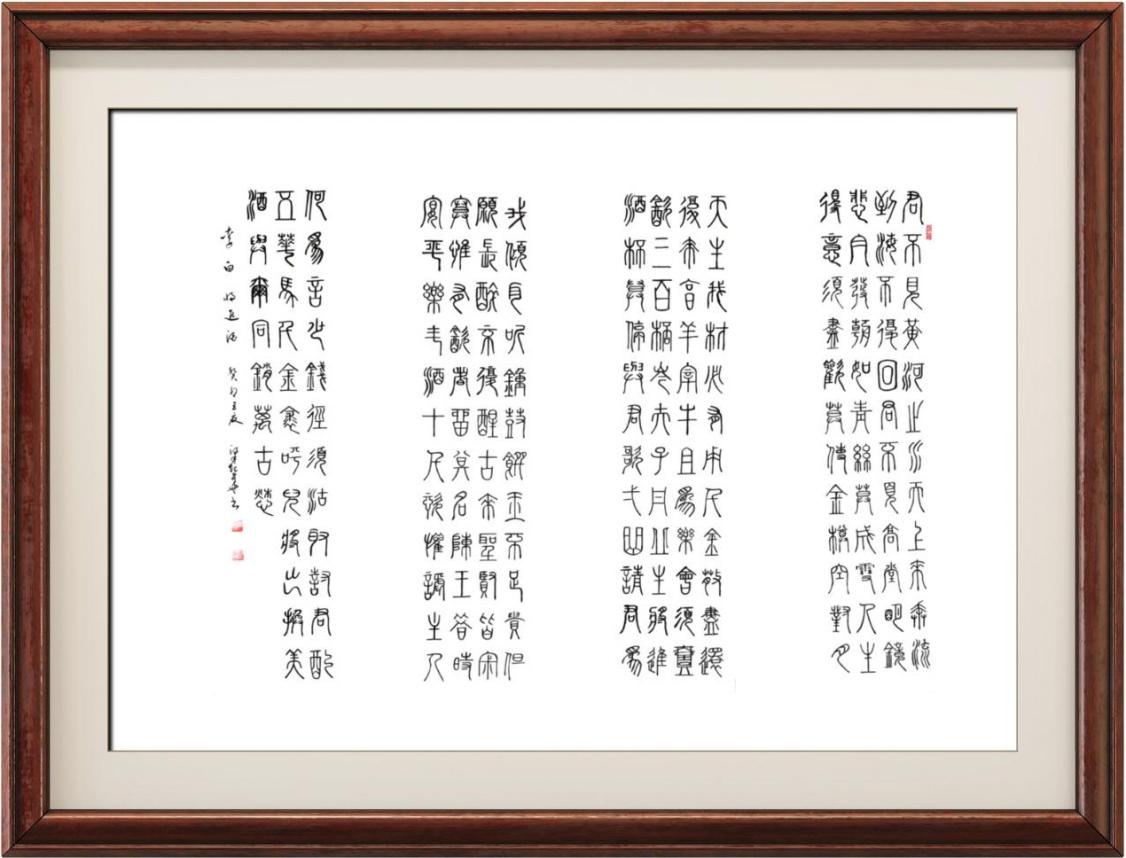 君不見黃河之水天上來奔流
到海不復回君不見高堂明鏡
悲白髮朝如青絲莫成雪人生
得意須盡歡莫使金樽空對月
天生我材必有用千金散盡還
復來烹羊宰牛且為樂會須壹
飲三百杯岑夫子丹丘生將進
酒杯莫停與君歌弌曲請君為
我傾耳聽鐘鼓饌玉不足貴但
願長醉不復醒古來聖賢皆寂
寞惟有飲者留其名陳王昔時
宴平樂斗酒十千恣歡謔主人
何為言少錢徑須沽取對君酌
五華馬千金裘呼兒將出換美
酒與爾同銷萬古愁
李白將進酒 癸卯